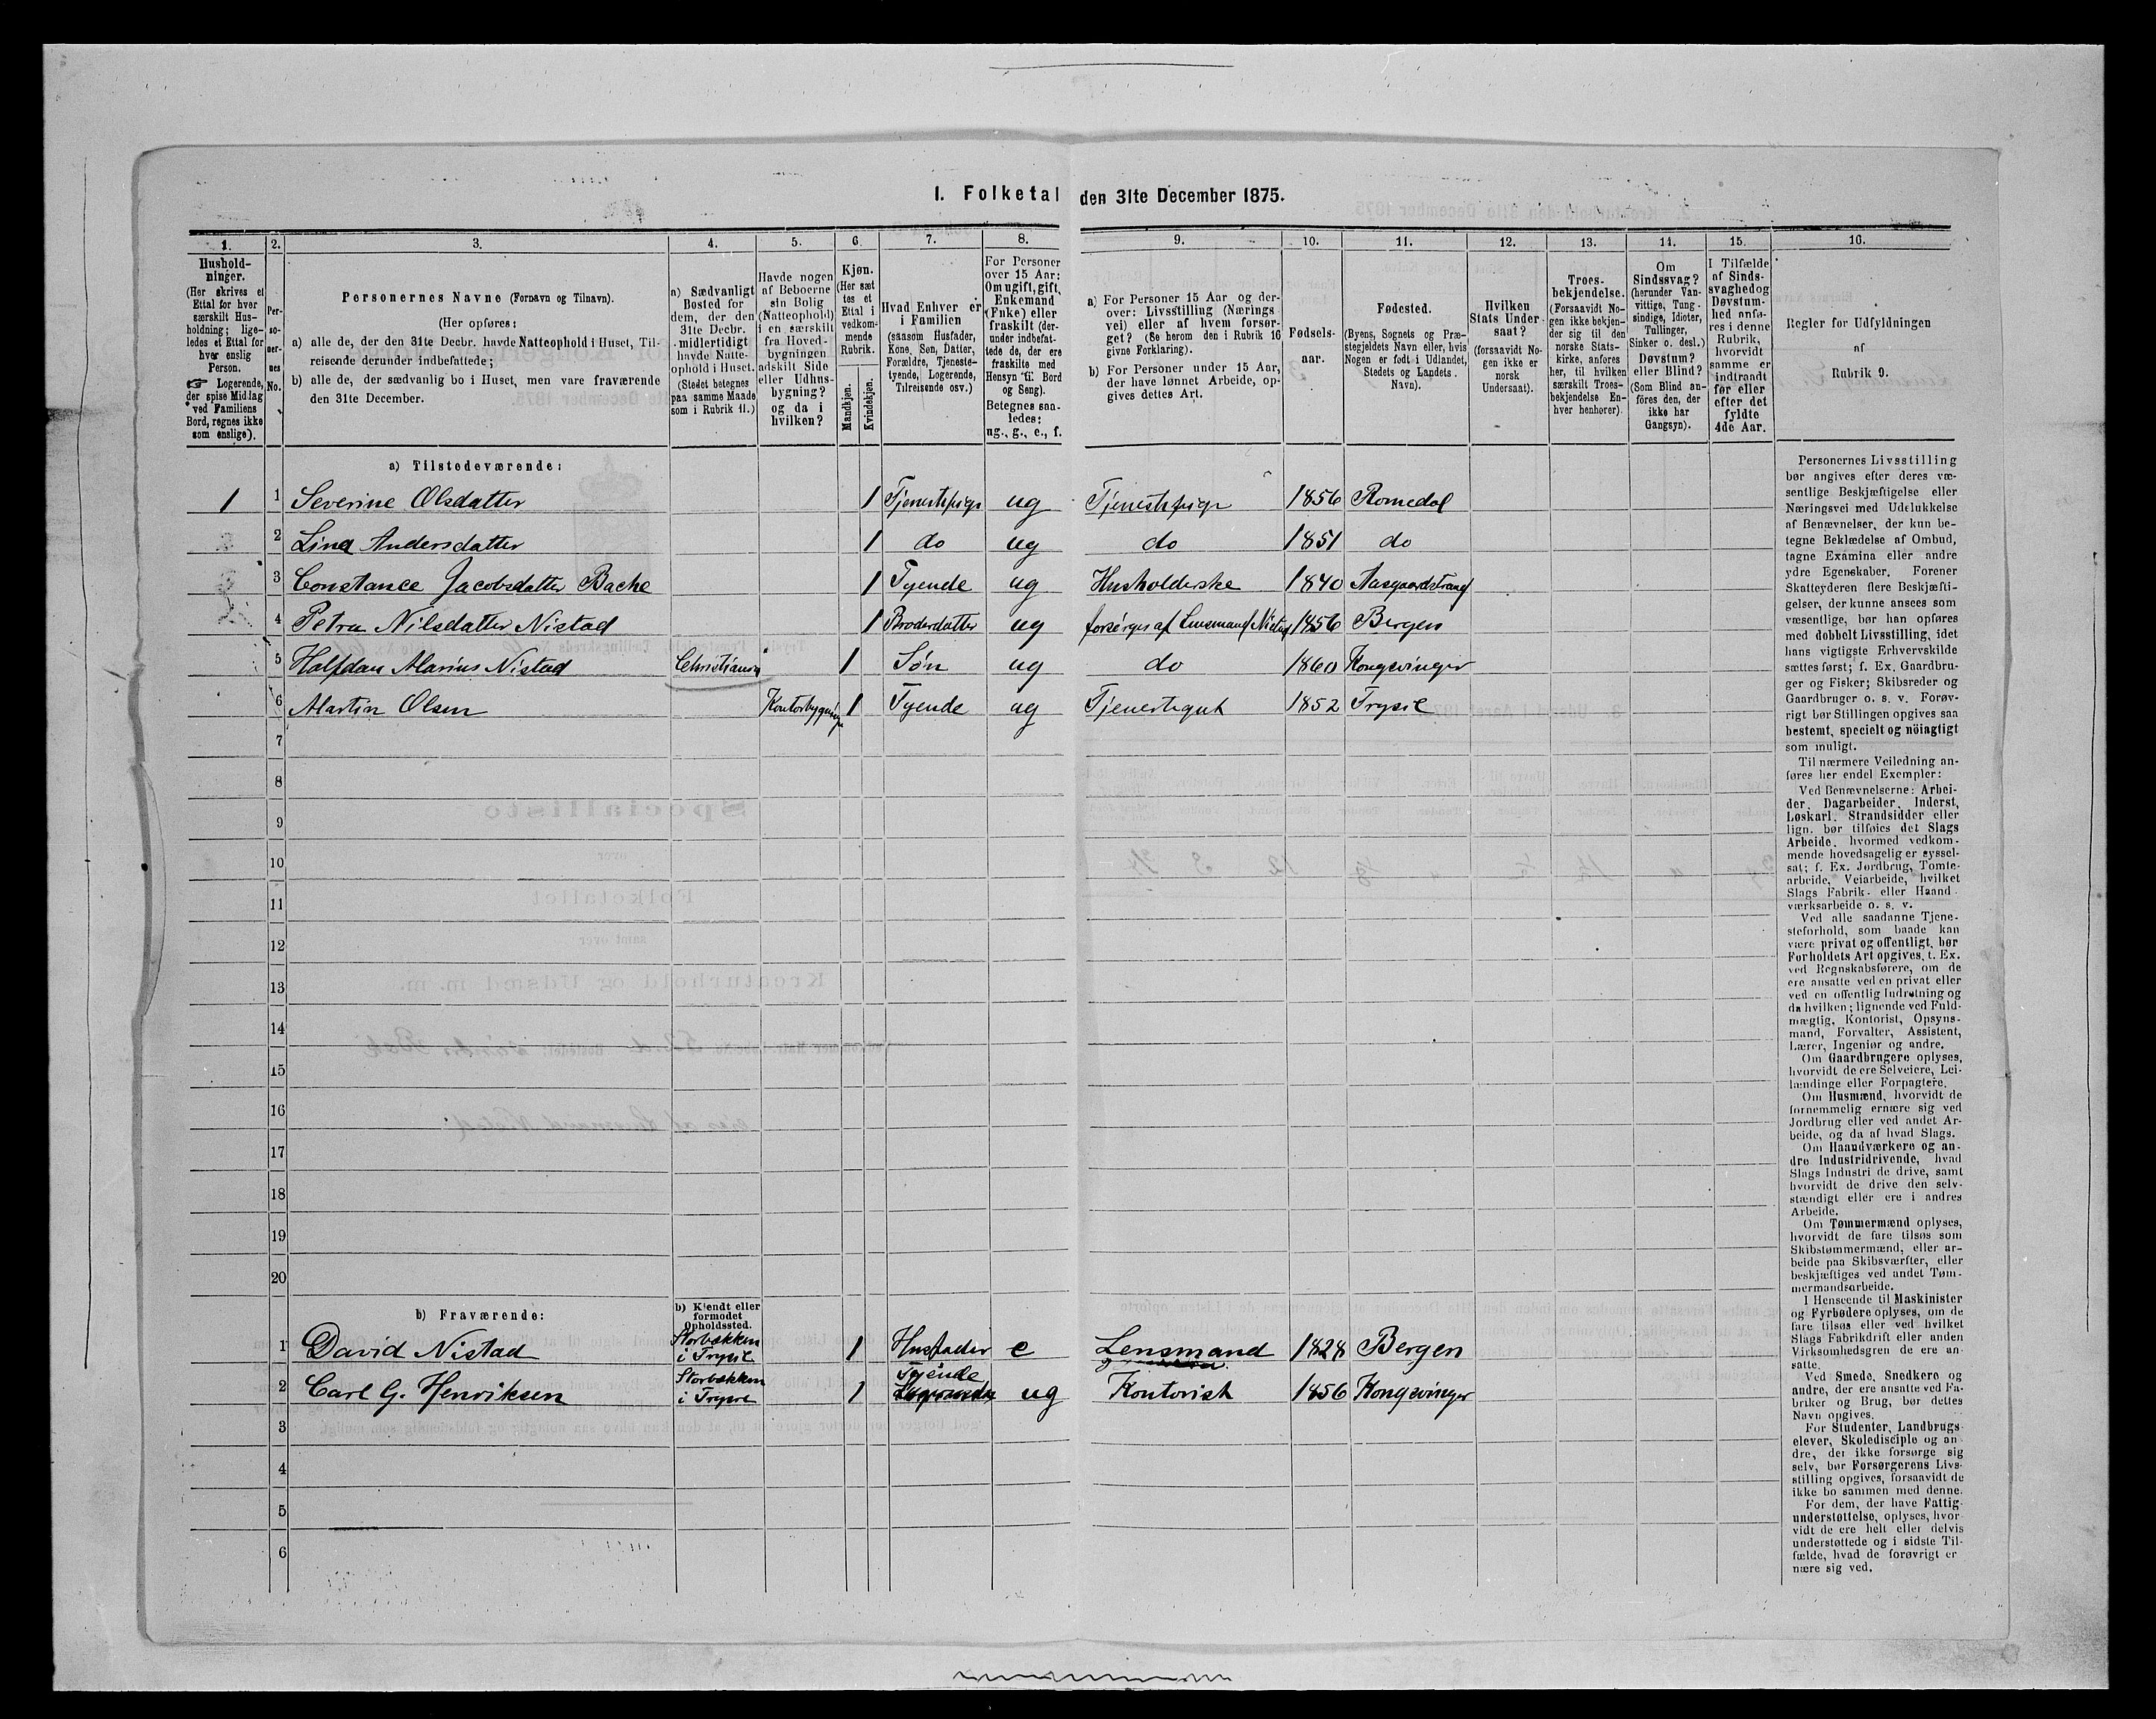 I. Folketal den 31te December 1875.
1. 2. 3. 4. 5. 6. 7. 8. 9. 10. 11. 12. 13. 14. 15. 16.
Hushold-
ninger.
(Her skrives et
Ettal for hver
særskilt Hus-
holdning; lige-
ledes et Ettal for
hver enslig
Person.
☞ Logerende,
der spise Middag
ved Familiens
Bord, regnes ikke
som enslige).
Per-
so-
ner-
nes
No.
Personernes Navne (Fornavn og Tilnavn).
(Her opføres:
a) alle de, der den 31te Decbr. havde Natteophold i Huset, Til-
reisende derunder indbefattede;
b) alle de, der sædvanlig bo i Huset, men vare fraværende
den 31te December.
a) Sædvanligt
Bosted for
dem, der den
31te Decbr.
midlertidigt
havde Natte-
ophold i Huset.
(Stedet betegnes
paa samme Maade
som i Rubrik 11.)
Havde nogen
af Beboerne
sin Bolig
(Natteophold)
i en særskilt
fra Hoved-
bygningen
adskilt Side
eller Udhus-
bygning?
og da i
hvilken?
Kjøn.
(Her sæt
tes et
Ettal i
vedkom-
mende
Rubrik.
Mandkjøn.
Kvindekjøn.
Hvad Enhver er
i Familien
(saasom Husfader,
Kone, Søn, Datter,
Forældre, Tjeneste-
tyende, Logerende,
Tilreisende osv.)
For Personer
over 15 Aar:
Om ugift, gift,
Enkemand
(Enke) eller
fraskilt (der-
under indbefat-
tede de, der ere
fraskilte med
Hensyn til Bord
og Seng).
Betegnes saa-
ledes:
ug., g., e., f.
a) For Personer 15 Aar og der-
over: Livsstilling (Nærings
vei) eller af hvem forsør-
get? (Se herom den i Rubrik 16
givne Forklaring).
b) For Personer under 15 Aar,
der have lønnet Arbeide, op-
gives dettes Art.
Fødsels-
aar.
Fødested.
(Byens, Sognets og Præ-
stegjeldets Navn eller, hvis
Nogen er født i Udlandet,
Stedets og Landets
Navn).
Hvilken
Stats Under
saat?
(forsaavidt No-
gen ikke er
norsk
Undersaat).
Troes-
bekjendelse.
(Forsaavidt No-
gen ikke bekjen-
der sig til den
norske Stats-
kirke, anføres
her, til hvilken
særskilt Troes-
bekjendelse En-
hver henhører).
Om
Sindssvag?
(herunder Van-
vittige, Tung-
sindige, Idioter,
Tullinger,
Sinker o. desl.)
Døvstum?
eller Blind?
(Som Blind an-
føres den, der
ikke har
Gangsyn).
I Tilfælde
af Sinds-
svaghed og
Døvstum-
hed anfø-
res i denne
Rubrik,
hvorvidt
samme er
indtraadt
før eller
efter det
fyldte
4de Aar.
Regler for Udfyldningen
af
Rubrik 9.
a) Tilstedeværende:
1 1 Severine Olsdatter 1 Tjenestepige ug Tjenestepige 1856 Romedal
2 Lina Andersdatter 1 do ug do 1851 do
3 Constance Jacobsdatter Bache 1 Tyende ug Husholderske 1840 Aasgaardstrand
4 Petra Nilsdatter Nistad 1 Broderdatter ug forsørges af Lensmand Nistad 1856 Bergen
5 Halfdan Marius Nistad Christiania 1 Søn ug do 1860 Kongsvinger
6 Martin Olsen Kontorbygning 1 Tyende ug Tjenestegut 1852 Trysil
7
8
9
10
11
12
13
14
15
16
17
18
19
20
b) Fraværende:
b) Kjendt eller
formodet
Opholdssted.
1 David Nistad Storbækken i Trysil 1 Husfader e Lensmand 1828 Bergen
2 Carl G. Henriksen Storbækken i Trysil 1 Tyende ug Kontorist 1856 Kongsvinger
3
4
5
6
Personernes Livsstilling
bør angives efter deres væ-
sentlige Beskjæftigelse eller
Næringsvei med Udelukkelse
af Benævnelser, der kun be-
tegne Beklædelse af Ombud,
tagne Examina eller andre
ydre Egenskaber. Forener
Skatteyderen flere Beskjæfti-
gelser, der kunne ansees som
væsentlige, bør han opføres
med dobbelt Livsstilling, idet
hans vigtigste Erhvervskilde
sættes først; f. Ex. Gaardbru-
ger og Fisker; Skibsreder og
Gaardbruger o. s. v. Forøv-
rigt bør Stillingen opgives saa
bestemt, specielt og nøiagtigt
som muligt.
Til nærmere Veiledning an-
føres her endel Exempler:
Ved Benævnelserne: Arbei-
der, Dagarbeider, Inderst,
Løskarl, Strandsidder eller
lign. bør tilføies det Slags
Arbeide, hvormed vedkom-
mende hovedsagelig er syssel-
sat; f. Ex. Jordbrug, Tomte-
arbeide, Veiarbeide, hvilket
Slags Fabrik- eller Haand-
værksarbeide o. s. v.
Ved alle saadanne Tjene-
steforhold, som baade kan
være privat og offentligt, bør
Forholdets Art opgives, f. Ex.
ved Regnskabsførere, om de
ere ansatte ved en privat eller
ved en offentlig Indretning og
da hvilken; lignende ved Fuld-
mægtig, Kontorist, Opsyns-
mand, Forvalter, Assistent,
Lærer, Ingeniør og andre.
Om Gaardbrugere oplyses,
hvorvidt de ere Selveiere, Lei-
lændinge eller Forpagtere.
Om Husmænd, hvorvidt de
fornemmelig ernære sig ved
Jordbrug eller ved andet Ar-
beide, og da af hvad Slags.
Om Haandværkere og an-
dre Industridrivende, hvad
Slags Industri de drive, samt
hvorvidt de drive den selv-
stændigt eller ere i andres
Arbeide.
Om Tømmermænd oplyses,
hvorvidt de fare tilsøs som
Skibstømmermænd, eller ar-
beide paa Skibsværfter, eller
beskjæftiges ved andet Tøm-
mermandsarbeide.
I Henseende til Maskinister
og Fyrbødere oplyses, om de
fare tilsøs eller ved hvilket
Slags Fabrikdrift eller anden
Virksomhedsgren de ere an-
satte.
Ved Smede, Snedkere og
andre, der ere ansatte ved Fa-
briker og Brug, bør dettes
Navn opgives.
For Studenter, Landbrugs-
elever, Skoledisciple og an
dre, der ikke forsørge sig
selv, bør Forsørgerens Livs-
stilling opgives, forsaavidt de
ikke bo sammen med denne.
For dem, der have Fattig-
understøttelse, oplyses, hvor-
vidt de ere helt eller delvis
understøttede og i sidste Til-
fælde, hvad de forøvrigt er
nære sig ved.